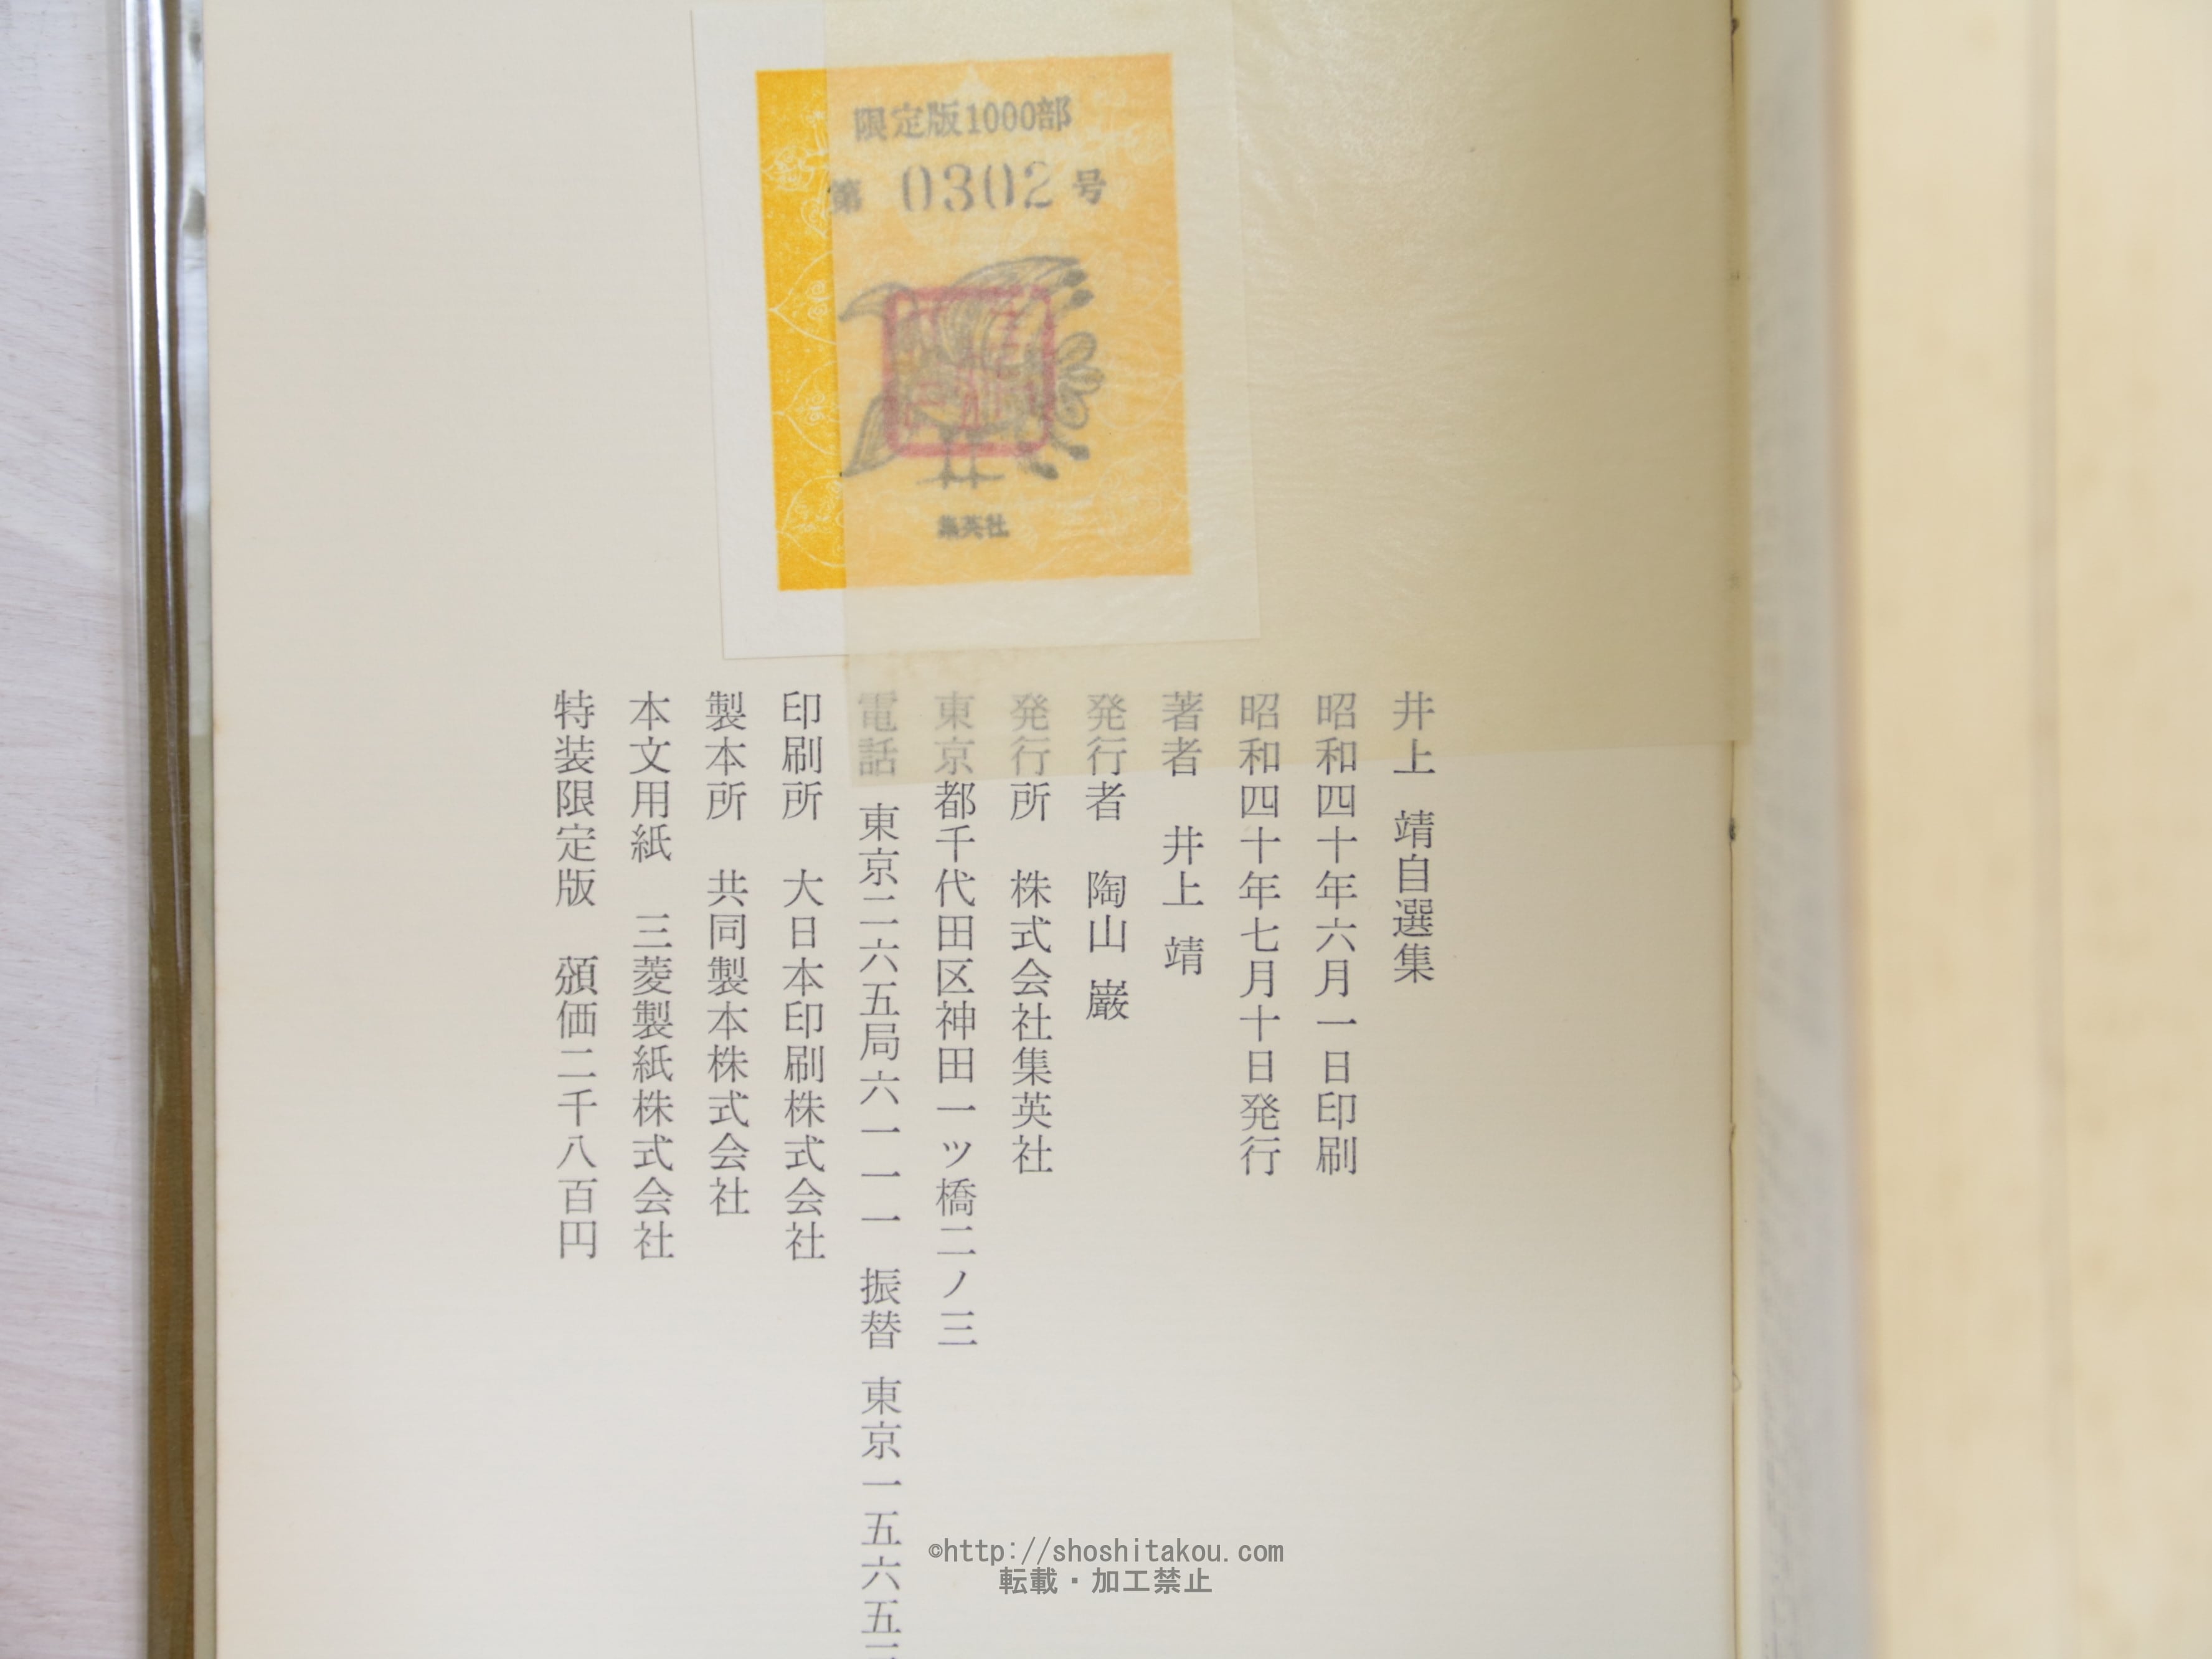 限定版1000部
第 0302 号
集英社
井上 靖自選集
昭和四十年六月一日印刷
昭和四十年七月十日発行
著者 井上 靖
発行者 陶山 巌
発行所 株式会社集英社
東京都千代田区神田一ツ橋二ノ三
電話 東京二六五局六一一一 振替 東京一五六五
印刷所 大日本印刷株式会社
製本所 共同製本株式会社
本文用紙 三菱製紙株式会社
特装限定版 頒価二千八百円
©http://shoshitakou.com
転載・加工禁止